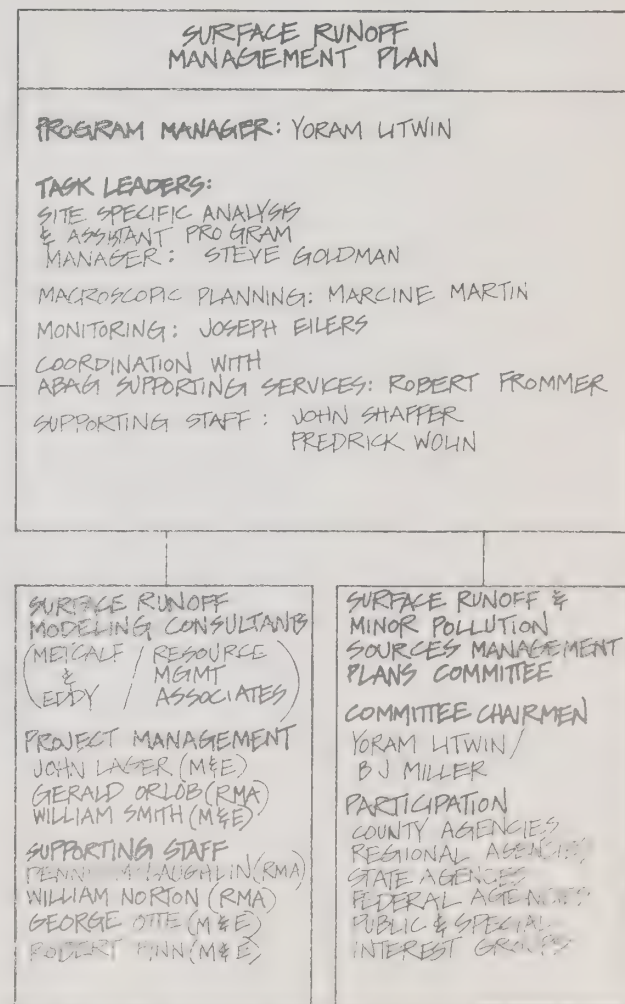 SURFACE RUNOFF
MANAGEMENT PLAN
PROGRAM MANAGER: YORAM LITWIN
TASK LEADERS:
SITE SPECIFIC ANALYSIS
& ASSISTANT PROGRAM
MANAGER: STEVE GOLDMAN
MACROSCOPIC PLANNING: MARCINE MARTIN
MONITORING: JOSEPH EILERS
COORDINATION WITH
ABAG SUPPORTING SERVICES: ROBERT FROMMER
SUPPORTING STAFF: JOHN SHAFFER
FREDRICK WOLIN
SURFACE RUNOFF
MODELING CONSULTANTS
(METCALF / RESOURCE
& / MGMT
EDDY / ASSOCIATES)
PROJECT MANAGEMENT
JOHN LAGER (M&E)
GERALD ORLOB (RMA)
WILLIAM SMITH (M&E)
SUPPORTING STAFF
(RMA)
WILLIAM NORTON (RMA)
GEORGE OTTE (M&E)
ROBERT (M&E)
SURFACE RUNOFF &
MINOR POLLUTION
SOURCES MANAGEMENT
PLANS COMMITTEE
COMMITTEE CHAIRMEN
YORAM LITWIN/
B J MILLER
PARTICIPATION
COUNTY AGENCIES
REGIONAL AGENCIES
STATE AGENCES
FEDERAL AGENCIES
PUBLIC & SPECIAL
INTEREST GROUPS